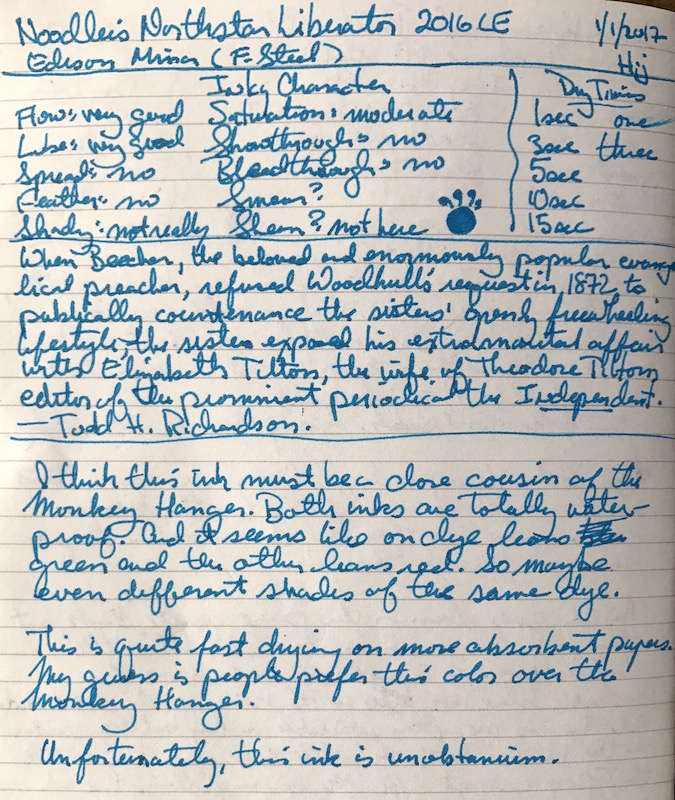 Noodler's Northstar Liberator 2016 LE 1/1/2017
Edison Mina (F-Steel) Hij
Inky Character Dry Times
Flow: very good Saturation: moderate 1sec one
Lube: very good Showthrough: no 3sec three
Spread: no Bleedthrough: no 5sec
Feather: no Smear? 10sec
Shady: not really Sheen? not here 15sec
When Beecher, the beloved and enormously popular evange
lical preacher, refused Woodhull's request in 1872 to
publically countenance the sisters' openly freewheeling
lifestyle, the sisters exposed his extramarital affair
with Elizabeth Tilton, the wife of Theodore Tilton
editor of the prominent periodical the Independent.
— Todd H. Richardson.
I think this ink must be a close cousin of the
Monkey Hanger. Both inks are totally water-
proof. And it seems like on dye leans
green and the other leans red. So maybe
even different shades of the same dye.
This is quite fast drying on more absorbent papers.
My guess is people prefer this color over the
Monkey Hanger.
Unfortunately, this ink is unobtanium.